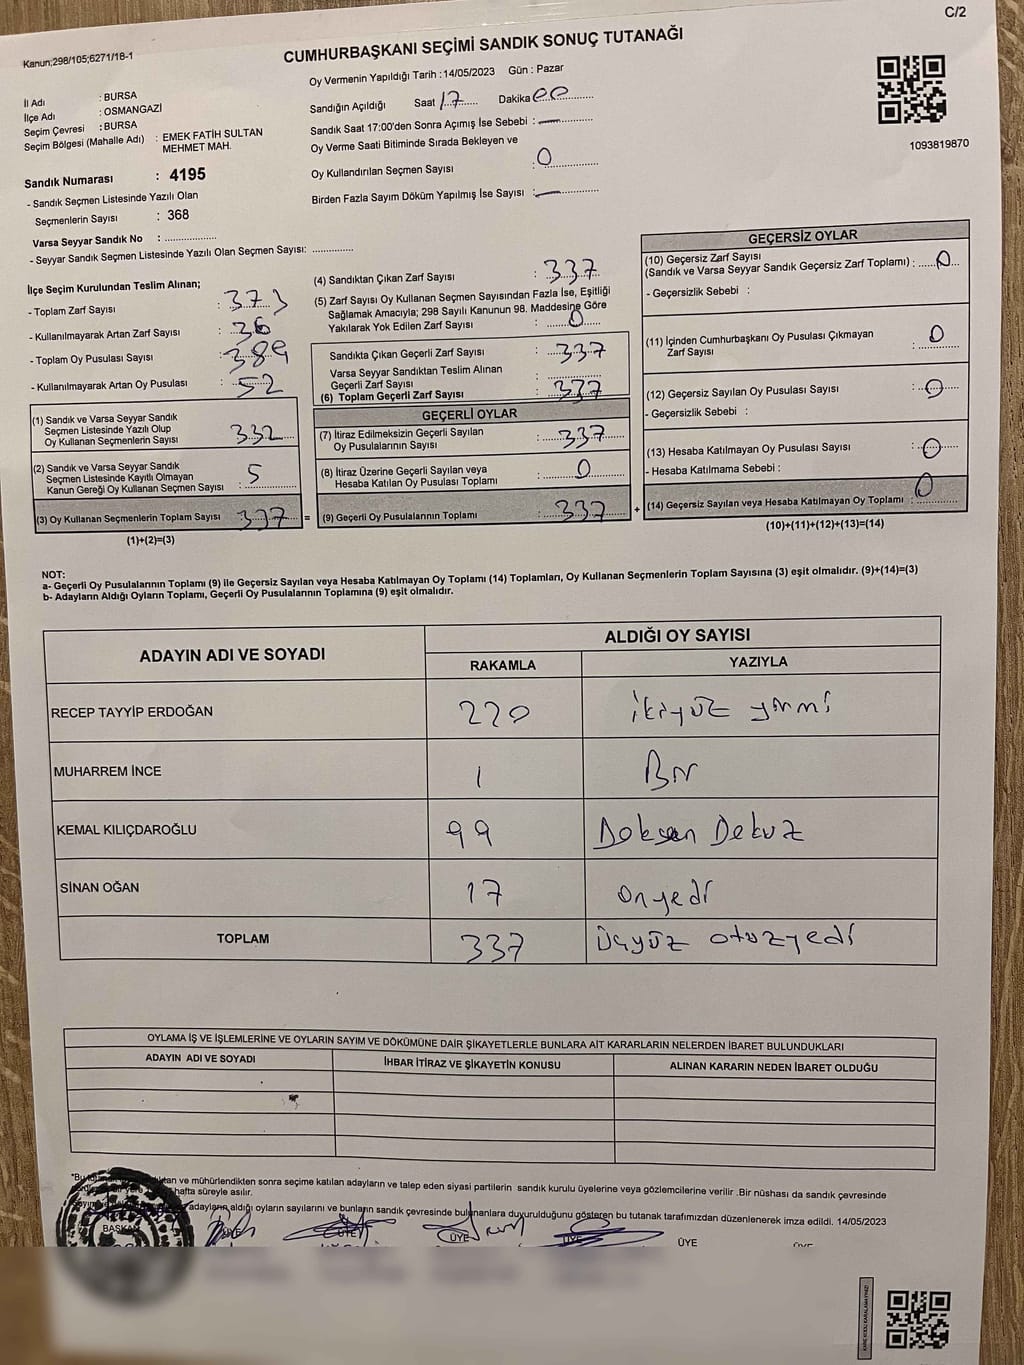 C/2
Kanun;298/105;6271/18-1
CUMHURBAŞKANI SEÇİMİ SANDIK SONUÇ TUTANAĞI
Oy Vermenin Yapıldığı Tarih :14/05/2023 Gün : Pazar
İl Adı : BURSA
İlçe Adı : OSMANGAZİ
Seçim Çevresi : BURSA
Seçim Bölgesi (Mahalle Adı) : EMEK FATİH SULTAN
MEHMET MAH.
Sandık Numarası : 4195
- Sandık Seçmen Listesinde Yazılı Olan
Seçmenlerin Sayısı : 368
Varsa Seyyar Sandık No : ..................
- Seyyar Sandık Seçmen Listesinde Yazılı Olan Seçmen Sayısı: ..............
Sandığın Açıldığı Saat 17 Dakika 00
Sandık Saat 17:00'den Sonra Açımış İse Sebebi : —
Oy Verme Saati Bitiminde Sırada Bekleyen ve
Oy Kullandırılan Seçmen Sayısı : 0
Birden Fazla Sayım Döküm Yapılmış İse Sayısı : —
1093819870
İlçe Seçim Kurulundan Teslim Alınan;
- Toplam Zarf Sayısı : 373
- Kullanılmayarak Artan Zarf Sayısı : 36
- Toplam Oy Pusulası Sayısı : 389
- Kullanılmayarak Artan Oy Pusulası : 52
(1) Sandık ve Varsa Seyyar Sandık
Seçmen Listesinde Yazılı Olup
Oy Kullanan Seçmenlerin Sayısı 332
(2) Sandık ve Varsa Seyyar Sandık
Seçmen Listesinde Kayıtlı Olmayan
Kanun Gereği Oy Kullanan Seçmen Sayısı : 5
(3) Oy Kullanan Seçmenlerin Toplam Sayısı 337 =
(1)+(2)=(3)
(4) Sandıktan Çıkan Zarf Sayısı : 337
(5) Zarf Sayısı Oy Kullanan Seçmen Sayısından Fazla İse, Eşitliği
Sağlamak Amacıyla; 298 Sayılı Kanunun 98. Maddesine Göre
Yakılarak Yok Edilen Zarf Sayısı : 0
Sandıkta Çıkan Geçerli Zarf Sayısı : 337
Varsa Seyyar Sandıktan Teslim Alınan
Geçerli Zarf Sayısı :
(6) Toplam Geçerli Zarf Sayısı : 337
GEÇERLİ OYLAR
(7) İtiraz Edilmeksizin Geçerli Sayılan
Oy Pusulalarının Sayısı : 337
(8) İtiraz Üzerine Geçerli Sayılan veya
Hesaba Katılan Oy Pusulası Toplamı : 0
(9) Geçerli Oy Pusulalarının Toplamı : 337 +
GEÇERSİZ OYLAR
(10) Geçersiz Zarf Sayısı
(Sandık ve Varsa Seyyar Sandık Geçersiz Zarf Toplamı) : 0
- Geçersizlik Sebebi :
(11) İçinden Cumhurbaşkanı Oy Pusulası Çıkmayan
Zarf Sayısı : 0
(12) Geçersiz Sayılan Oy Pusulası Sayısı : 0
- Geçersizlik Sebebi :
(13) Hesaba Katılmayan Oy Pusulası Sayısı : 0
- Hesaba Katılmama Sebebi :
(14) Geçersiz Sayılan veya Hesaba Katılmayan Oy Toplamı : 0
(10)+(11)+(12)+(13)=(14)
NOT:
a- Geçerli Oy Pusulalarının Toplamı (9) ile Geçersiz Sayılan veya Hesaba Katılmayan Oy Toplamı (14) Toplamları, Oy Kullanan Seçmenlerin Toplam Sayısına (3) eşit olmalıdır. (9)+(14)=(3)
b- Adayların Aldığı Oyların Toplamı, Geçerli Oy Pusulalarının Toplamına (9) eşit olmalıdır.
ADAYIN ADI VE SOYADI ALDIĞI OY SAYISI
RAKAMLA YAZIYLA
RECEP TAYYİP ERDOĞAN 220 ikiyüz yirmi
MUHARREM İNCE 1 Bir
KEMAL KILIÇDAROĞLU 99 Doksan Dokuz
SİNAN OĞAN 17 onyedi
TOPLAM 337 Üçyüz otuzyedi
OYLAMA İŞ VE İŞLEMLERİNE VE OYLARIN SAYIM VE DÖKÜMÜNE DAİR ŞİKAYETLERLE BUNLARA AİT KARARLARIN NELERDEN İBARET BULUNDUKLARI
ADAYIN ADI VE SOYADI İHBAR İTİRAZ VE ŞİKAYETİN KONUSU ALINAN KARARIN NEDEN İBARET OLDUĞU
"Bu ve mühürlendikten sonra seçime katılan adayların ve talep eden siyasi partilerin sandık kurulu üyelerine veya gözlemcilerine verilir .Bir nüshası da sandık çevresinde
hafta süreyle asılır.
adayların aldığı oyların sayılarını ve bunların sandık çevresinde bulunanlara duyurulduğunu gösteren bu tutanak tarafımızdan düzenlenerek imza edildi. 14/05/2023
BAŞKAN ÜYE ÜYE ÜYE ÜYE